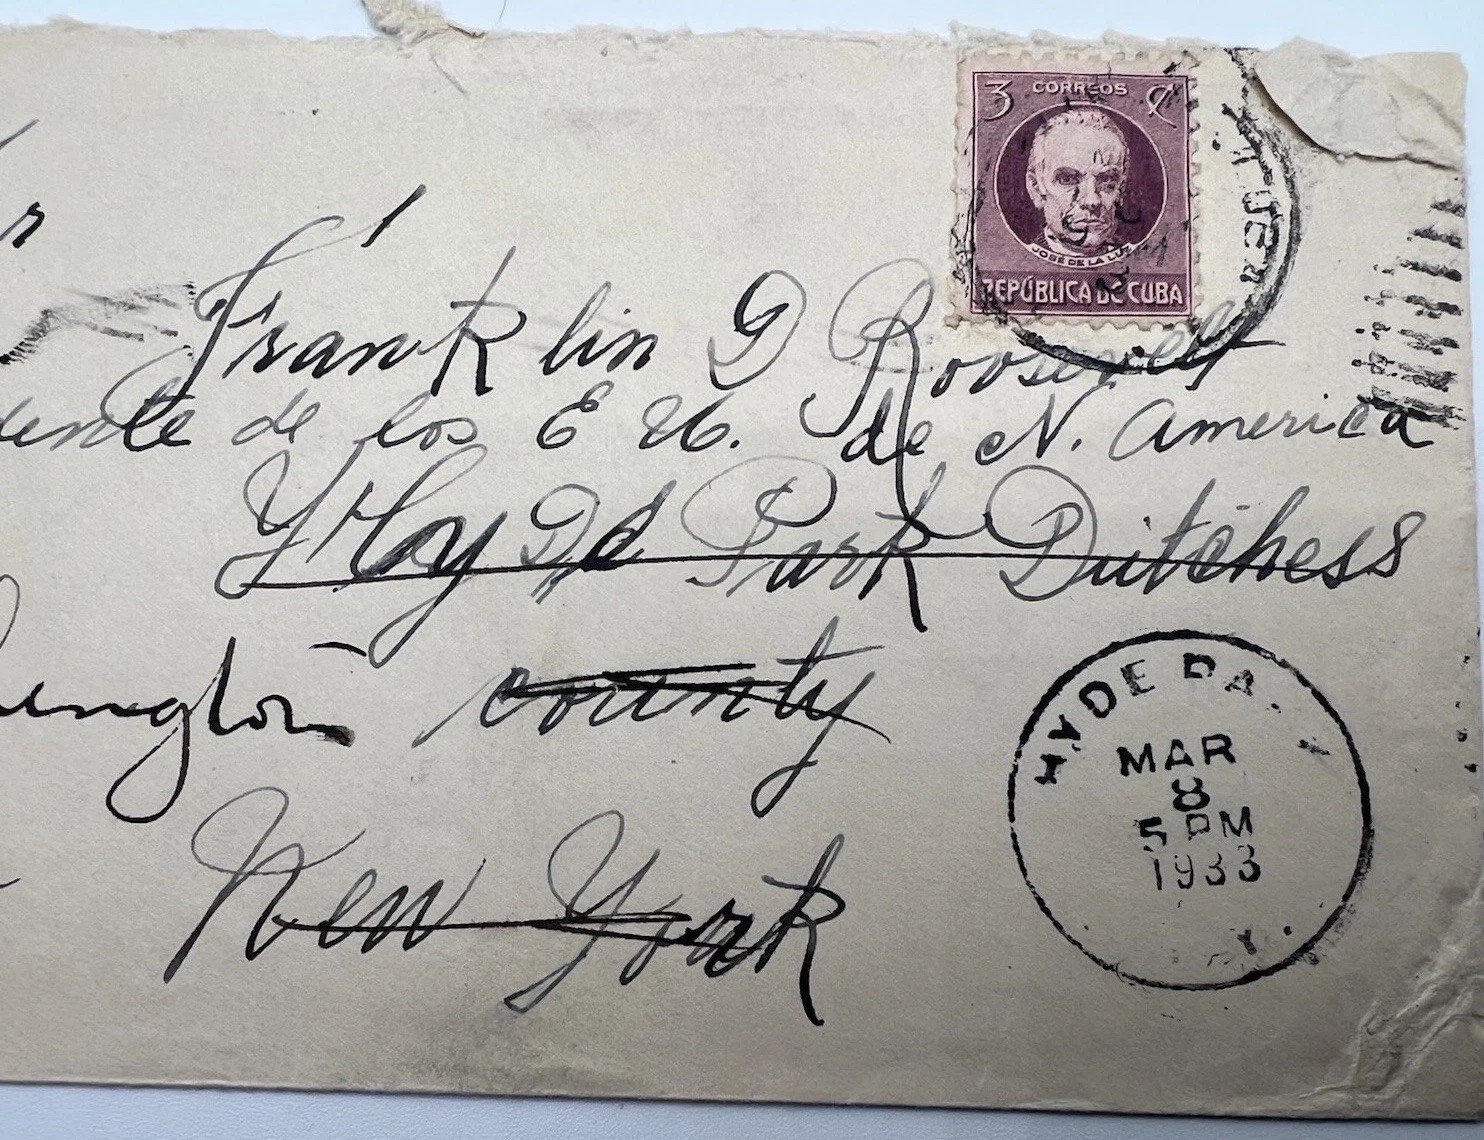 3 CORREOS ¢
JOSÉ DE LA LUZ
REPÚBLICA DE CUBA
Franklin D Roosevelt
dente de los E U. de N. America
Hay Dd Park Dutchess
ington county
New York
HYDE PA
MAR
8
5 PM
1933
Y.